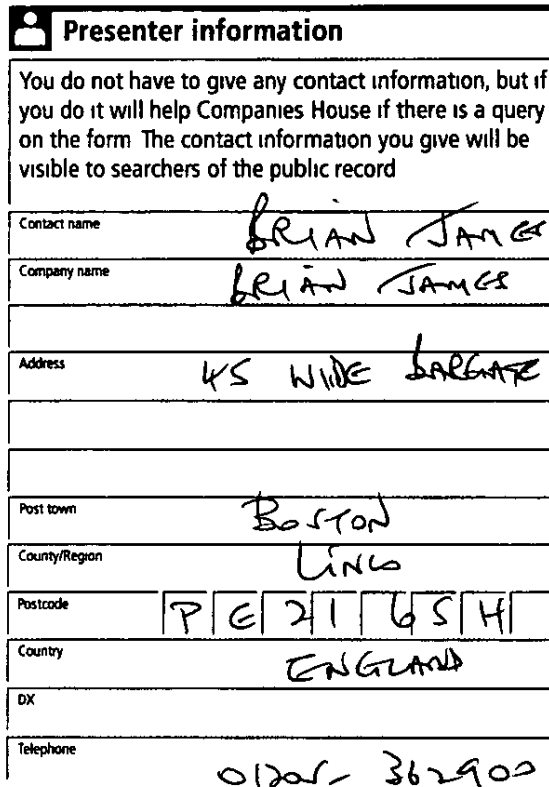 Presenter information
You do not have to give any contact information, but if
you do it will help Companies House if there is a query
on the form The contact information you give will be
visible to searchers of the public record
Contact name BRIAN JAMES
Company name BRIAN JAMES
Address 45 WIDE BARGATE
Post town BOSTON
County/Region LINCS
Postcode PE21 6SH
Country ENGLAND
DX
Telephone 01205- 362900